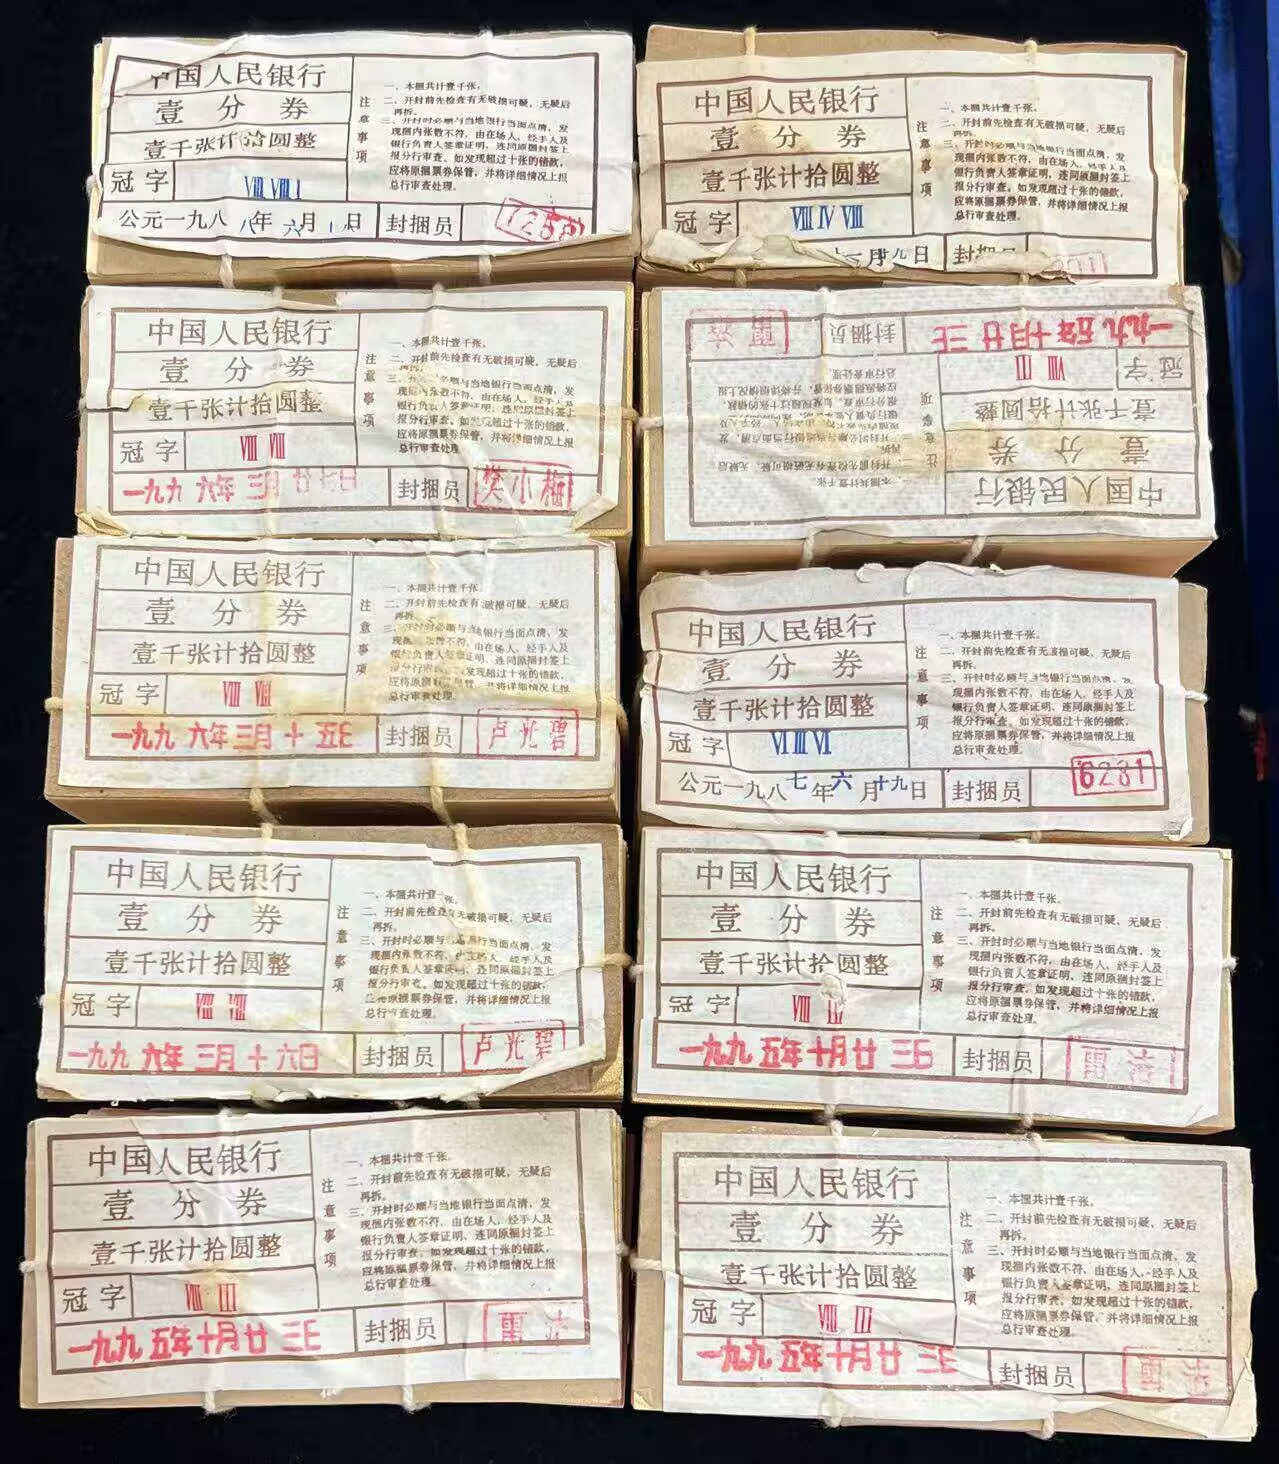 中国人民银行
壹分券
壹千张计拾圆整
冠字 Ⅷ Ⅷ Ⅰ
公元一九八八年六月 日 封捆员 7258
注意事项
一、本捆共计壹千张。
二、开封前先检查有无破损可疑，无疑后
再拆。
三、开封时必顺与当地银行当面点清，发
现捆内张数不符，由在场人，经手人及
银行负责人签章证明，连同原捆封签上
报分行审查。如发现超过十张的错款，
应将原捆票券保管，并将详细情况上报
总行审查处理。
中国人民银行
壹分券
壹千张计拾圆整
冠字 Ⅷ Ⅳ Ⅷ
月十九日 封捆
注意事项
一、本捆共计壹千张。
二、开封前先检查有无破损可疑，无疑后
再拆。
三、开封时必顺与当地银行当面点清，发
现捆内张数不符，由在场人，经手人及
银行负责人签章证明，连同原捆封签上
报分行审查。如发现超过十张的错款，
应将原捆票券保管，并将详细情况上报
总行审查处理。
中国人民银行
壹分券
壹千张计拾圆整
冠字 Ⅷ Ⅷ
一九九六年三月廿 日 封捆员 樊小梅
注意事项
一、本捆共计壹千张。
二、开封前先检查有无破损可疑，无疑后
再拆。
三、开封时必顺与当地银行当面点清，发
现捆内张数不符，由在场人，经手人及
银行负责人签章证明，连同原捆封签上
报分行审查。如发现超过十张的错款，
应将原捆票券保管，并将详细情况上报
总行审查处理。
中国人民银行
壹分券
壹千张计拾圆整
冠字 Ⅷ Ⅲ
一九九五年十月廿三日 封捆员
注意事项
一、本捆共计壹千张。
二、开封前先检查有无破损可疑，无疑后
再拆。
三、开封时必顺与当地银行当面点清，发
现捆内张数不符，由在场人，经手人及
银行负责人签章证明，连同原捆封签上
报分行审查。如发现超过十张的错款，
应将原捆票券保管，并将详细情况上报
总行审查处理。
中国人民银行
壹分券
壹千张计拾圆整
冠字 Ⅷ Ⅷ
一九九六年三月十五日 封捆员 卢光碧
注意事项
一、本捆共计壹千张。
二、开封前先检查有无破损可疑，无疑后
再拆。
三、开封时必顺与当地银行当面点清，发
现捆内张数不符，由在场人，经手人及
银行负责人签章证明，连同原捆封签上
报分行审查。如发现超过十张的错款，
应将原捆票券保管，并将详细情况上报
总行审查处理。
中国人民银行
壹分券
壹千张计拾圆整
冠字 Ⅵ Ⅲ Ⅵ
公元一九八七年六月十九日 封捆员 6281
注意事项
一、本捆共计壹千张。
二、开封前先检查有无破损可疑，无疑后
再拆。
三、开封时必顺与当地银行当面点清，发
现捆内张数不符，由在场人，经手人及
银行负责人签章证明，连同原捆封签上
报分行审查。如发现超过十张的错款，
应将原捆票券保管，并将详细情况上报
总行审查处理。
中国人民银行
壹分券
壹千张计拾圆整
冠字 Ⅷ Ⅷ
一九九六年三月十六日 封捆员 卢光碧
注意事项
一、本捆共计壹千张。
二、开封前先检查有无破损可疑，无疑后
再拆。
三、开封时必顺与当地银行当面点清，发
现捆内张数不符，由在场人，经手人及
银行负责人签章证明，连同原捆封签上
报分行审查。如发现超过十张的错款，
应将原捆票券保管，并将详细情况上报
总行审查处理。
中国人民银行
壹分券
壹千张计拾圆整
冠字 Ⅷ Ⅲ
一九九五年十月廿三日 封捆员
注意事项
一、本捆共计壹千张。
二、开封前先检查有无破损可疑，无疑后
再拆。
三、开封时必顺与当地银行当面点清，发
现捆内张数不符，由在场人，经手人及
银行负责人签章证明，连同原捆封签上
报分行审查。如发现超过十张的错款，
应将原捆票券保管，并将详细情况上报
总行审查处理。
中国人民银行
壹分券
壹千张计拾圆整
冠字 Ⅷ Ⅲ
一九九五年十月廿三日 封捆员
注意事项
一、本捆共计壹千张。
二、开封前先检查有无破损可疑，无疑后
再拆。
三、开封时必顺与当地银行当面点清，发
现捆内张数不符，由在场人，经手人及
银行负责人签章证明，连同原捆封签上
报分行审查。如发现超过十张的错款，
应将原捆票券保管，并将详细情况上报
总行审查处理。
中国人民银行
壹分券
壹千张计拾圆整
冠字 Ⅷ Ⅲ
一九九五年十月廿三日 封捆员
注意事项
一、本捆共计壹千张。
二、开封前先检查有无破损可疑，无疑后
再拆。
三、开封时必顺与当地银行当面点清，发
现捆内张数不符，由在场人，经手人及
银行负责人签章证明，连同原捆封签上
报分行审查。如发现超过十张的错款，
应将原捆票券保管，并将详细情况上报
总行审查处理。